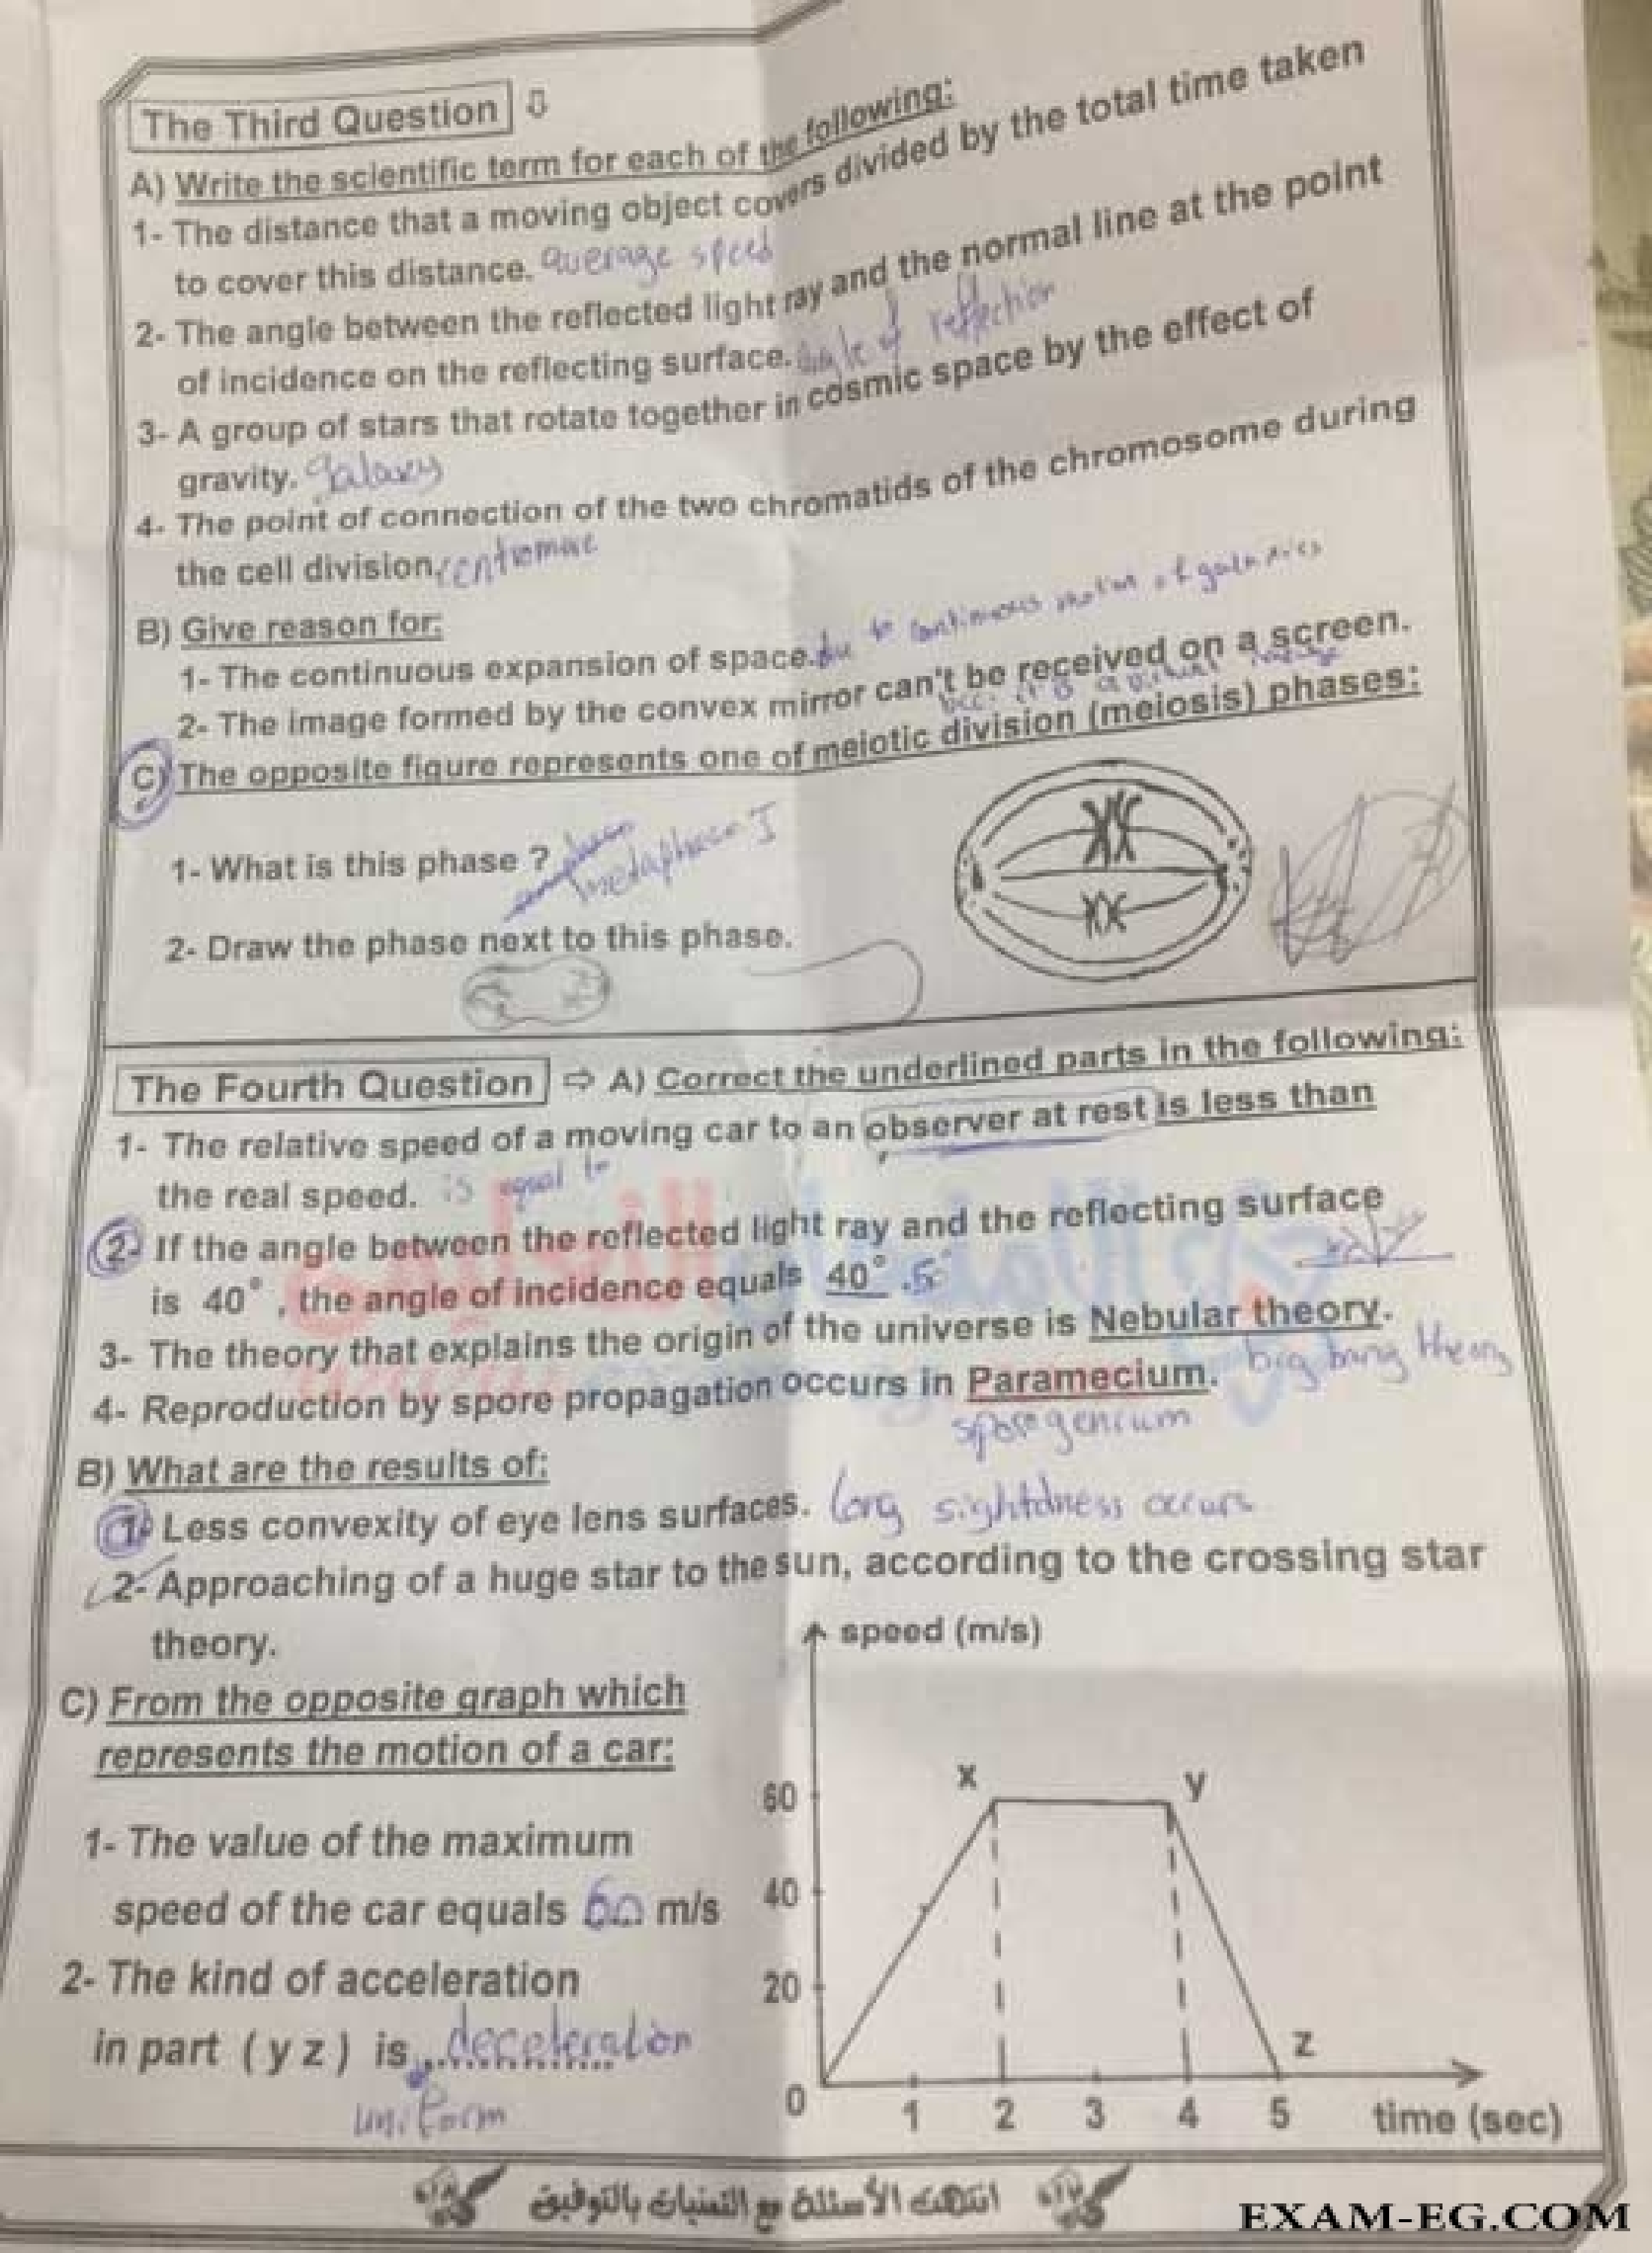 The Third Question ⇩
A) Write the scientific term for each of the following:
1- The distance that a moving object covers divided by the total time taken
to cover this distance. average speed
2- The angle between the reflected light ray and the normal line at the point
of incidence on the reflecting surface. angle of reflection
3- A group of stars that rotate together in cosmic space by the effect of
gravity. galaxy
4- The point of connection of the two chromatids of the chromosome during
the cell division. centromere
B) Give reason for:
1- The continuous expansion of space. due to continuous motion of galaxies
2- The image formed by the convex mirror can't be received on a screen.
image
C) The opposite figure represents one of meiotic division (meiosis) phases:
1- What is this phase ? metaphase I
2- Draw the phase next to this phase.
The Fourth Question ⇨ A) Correct the underlined parts in the following:
1- The relative speed of a moving car to an observer at rest is less than
the real speed. is equal to
2- If the angle between the reflected light ray and the reflecting surface
is 40°, the angle of incidence equals 40°. 50
3- The theory that explains the origin of the universe is Nebular theory.
big bang theory
4- Reproduction by spore propagation occurs in Paramecium.
B) What are the results of:
1- Less convexity of eye lens surfaces. long sightdness occurs
2- Approaching of a huge star to the sun, according to the crossing star
theory.
C) From the opposite graph which
represents the motion of a car:
1- The value of the maximum
speed of the car equals 60 m/s
2- The kind of acceleration
in part ( y z ) is .............. deceleration
uniform
speed (m/s)
x
y
60
40
20
z
0
1 2 3 4 5 time (sec)
انتهت الأسئلة مع التمنيات بالتوفيق
EXAM-EG.COM